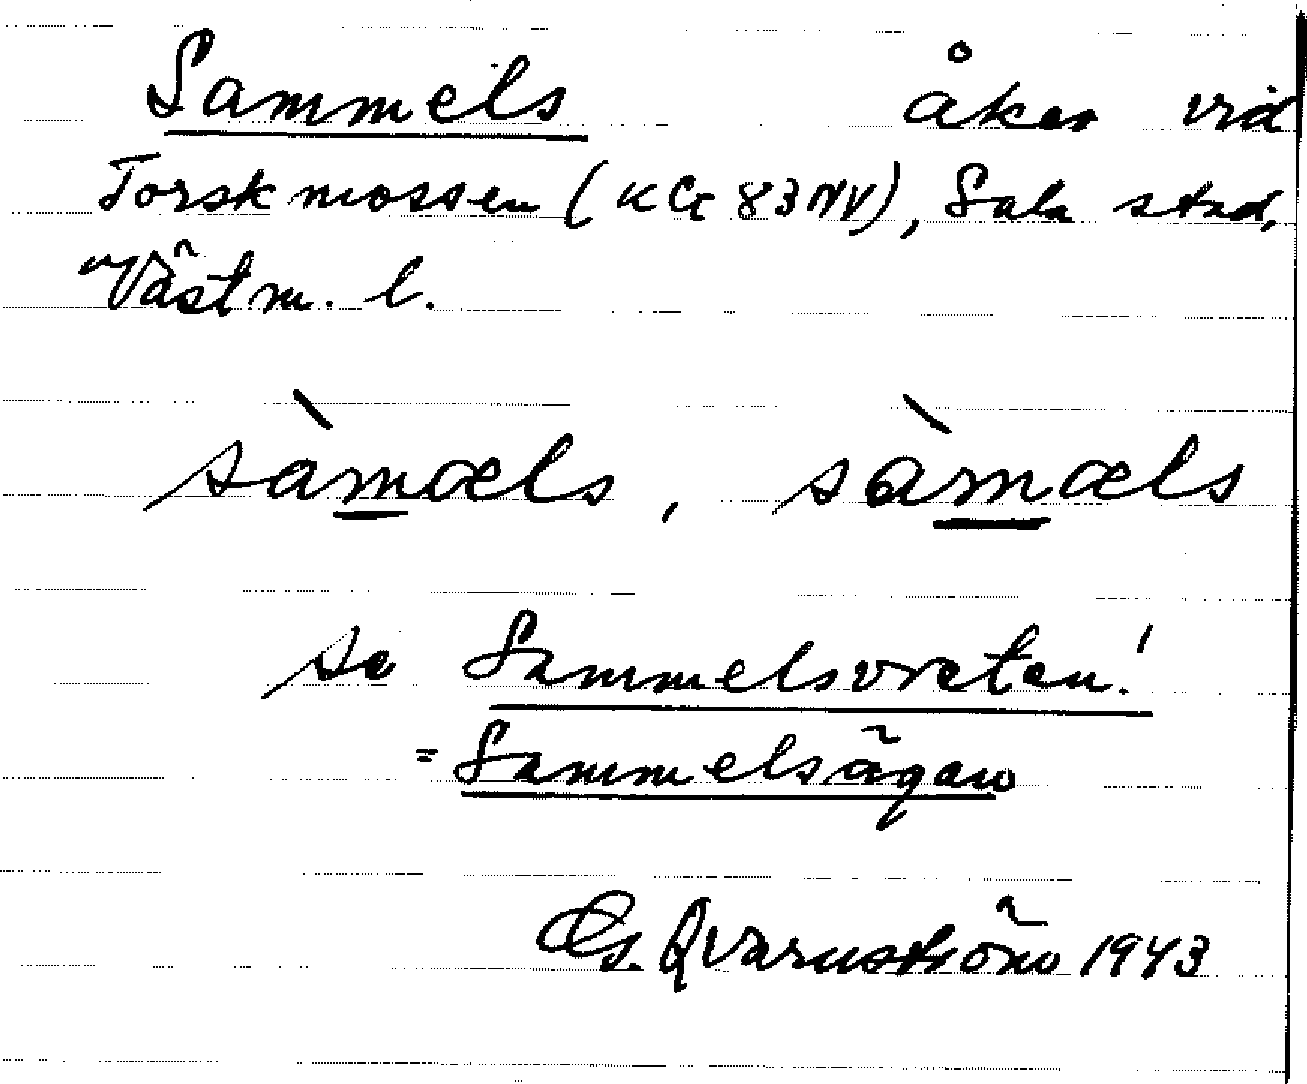 Sammels åker vid
Torskmossen (KG 83 NV), Sala stad,
Västm. l.
sàmæls, sàmæls
se Sammelsvreten!
= Sammelsägan
Gs. Qvarnström 1943